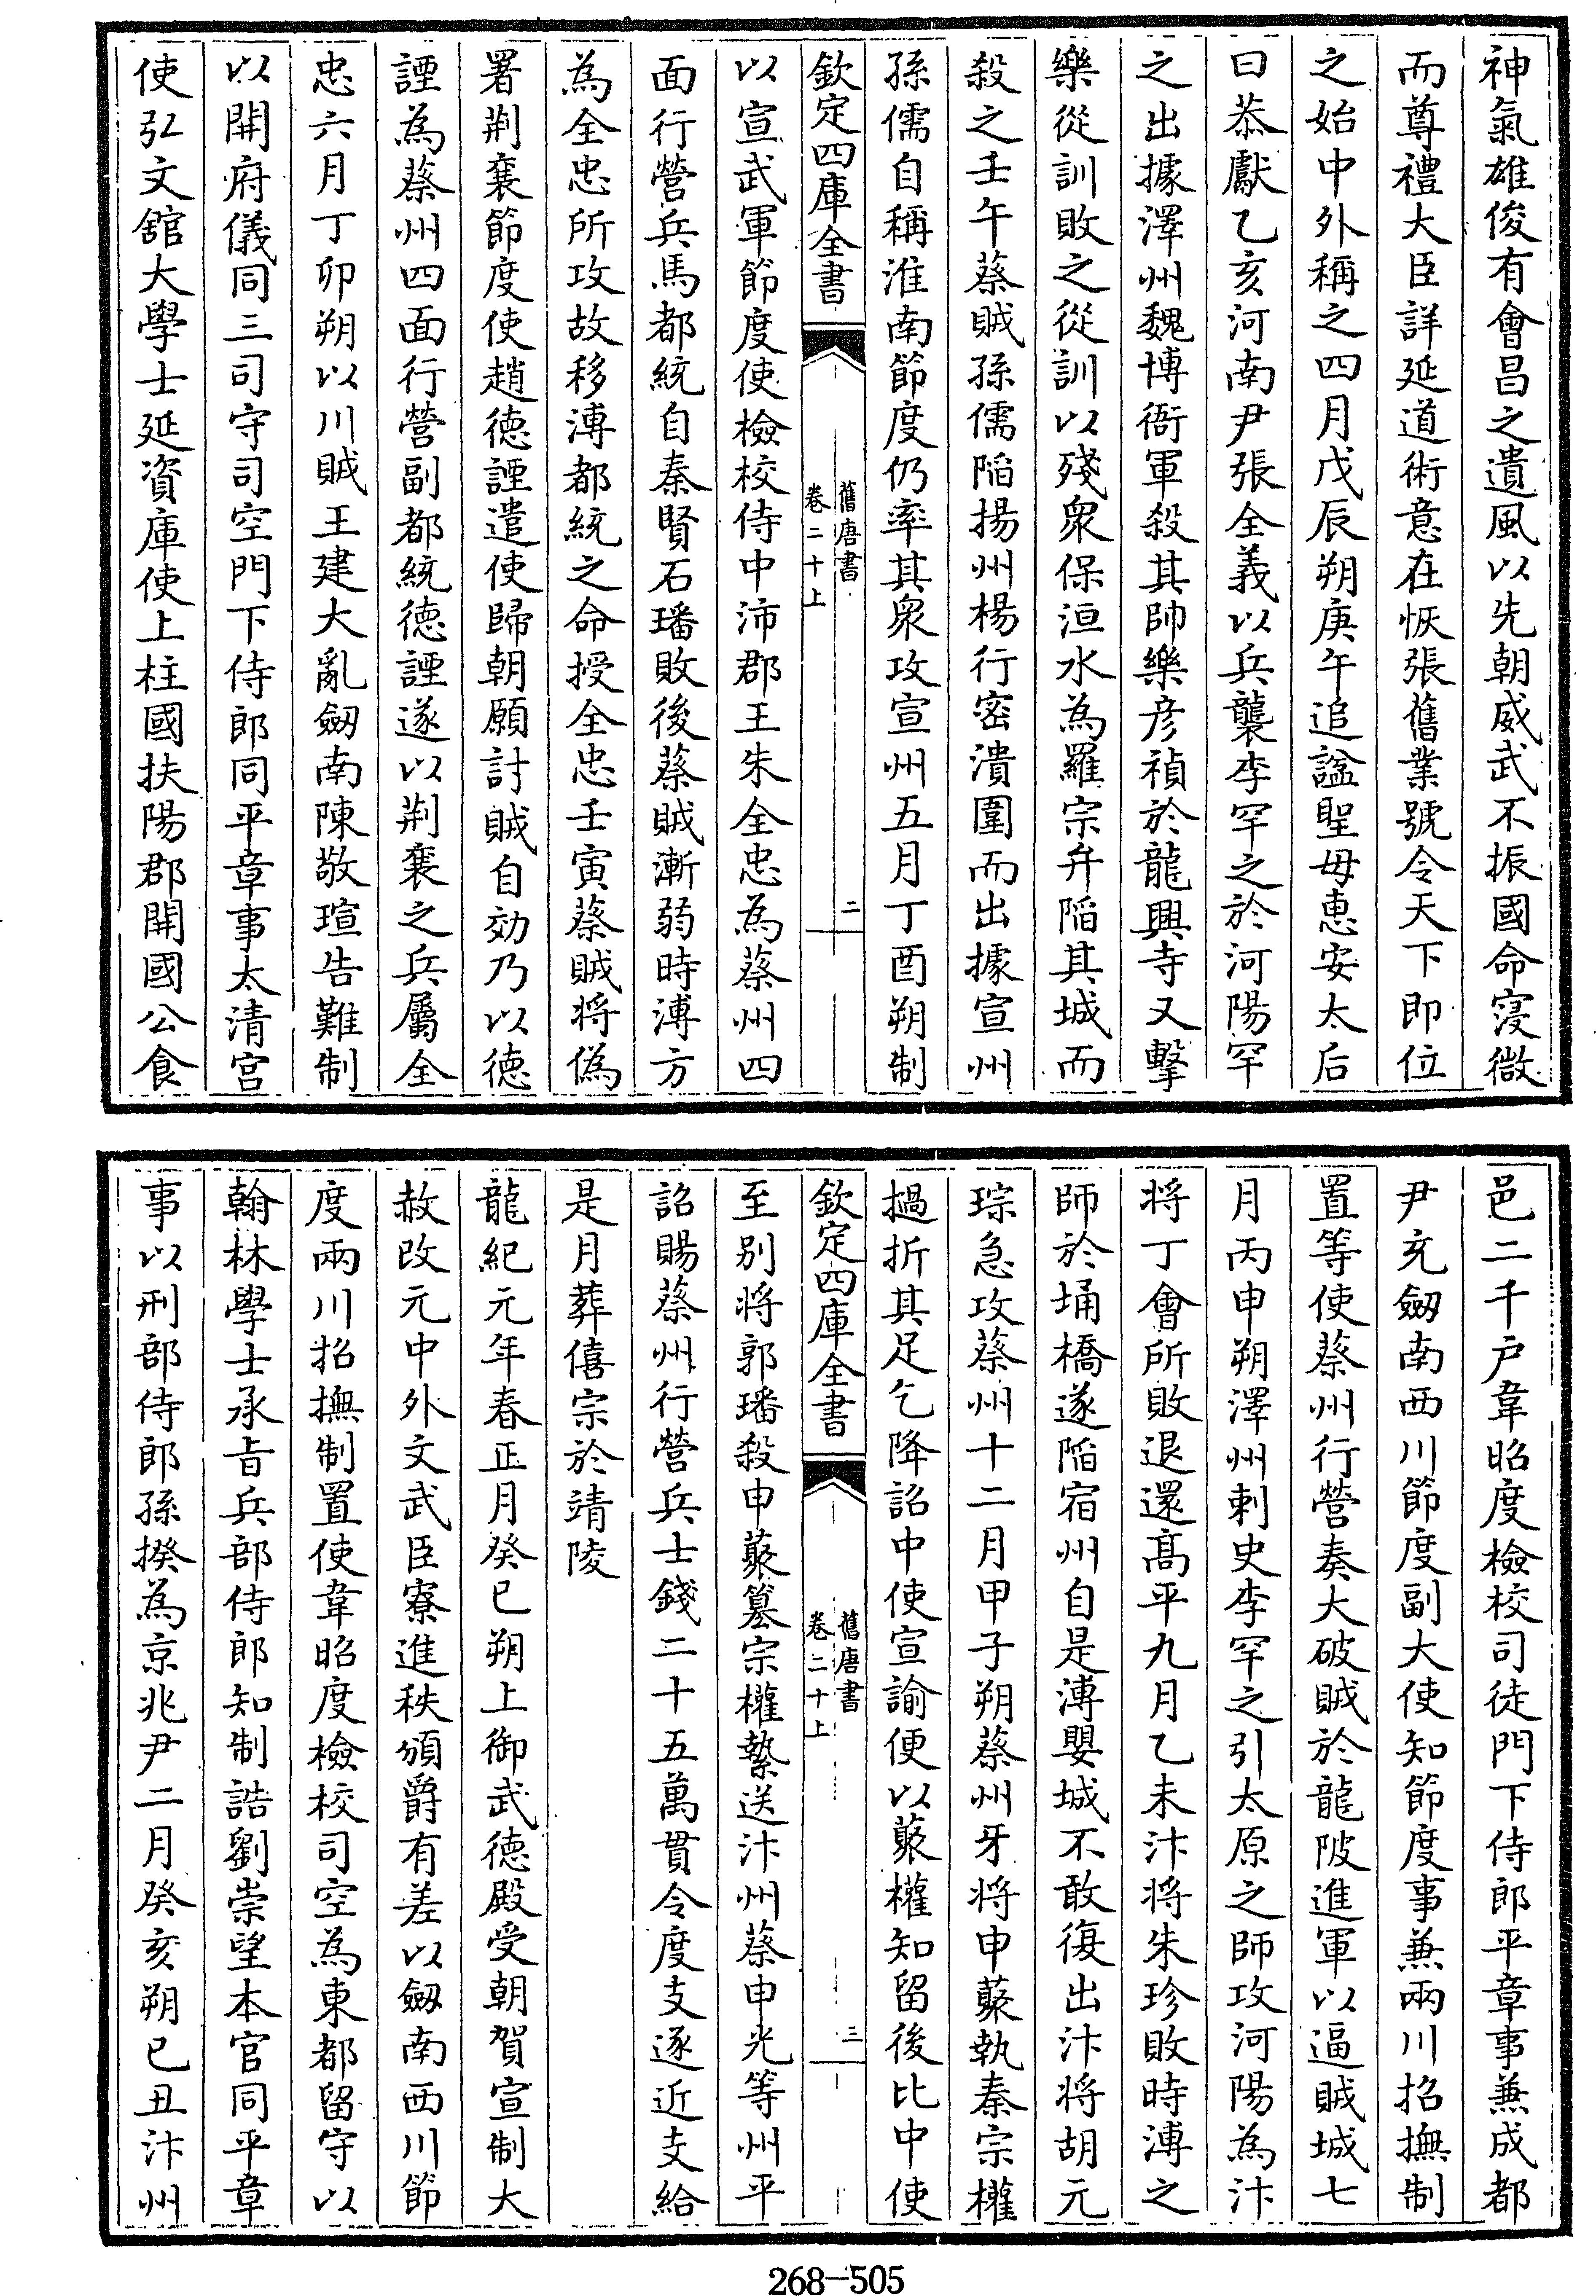 神氣雄俊有會昌之遺風以先朝威武不振國命寖微
而尊禮大臣詳延道術意在恢張舊業號令天下即位
之始中外稱之四月戊辰朔庚午追諡聖母惠安太后
曰恭獻乙亥河南尹張全義以兵襲李罕之於河陽罕
之出據澤州魏博衙軍殺其帥樂彦禎於龍興寺又擊
樂從訓敗之從訓以殘衆保洹水為羅宗弁陷其城而
殺之壬午蔡賊孫儒陷揚州楊行密潰圍而出據宣州
孫儒自稱淮南節度仍率其衆攻宣州五月丁酉朔制
欽定四庫全書
舊唐書
卷二十上
二
以宣武軍節度使檢校侍中沛郡王朱全忠為蔡州四
面行營兵馬都統自秦賢石璠敗後蔡賊漸弱時溥方
為全忠所攻故移溥都統之命授全忠壬寅蔡賊將偽
署荆襄節度使趙德諲遣使歸朝願討賊自効乃以德
諲為蔡州四面行營副都統德諲遂以荆襄之兵屬全
忠六月丁卯朔以川賊王建大亂劒南陳敬瑄告難制
以開府儀同三司守司空門下侍郎同平章事太清宫
使弘文館大學士延資庫使上柱國扶陽郡開國公食
邑二千户韋昭度檢校司徒門下侍郎平章事兼成都
尹充劒南西川節度副大使知節度事兼兩川招撫制
置等使蔡州行營奏大破賊於龍陂進軍以逼賊城七
月丙申朔澤州刺史李罕之引太原之師攻河陽為汴
將丁會所敗退還髙平九月乙未汴將朱珍敗時溥之
師於埇橋遂陷宿州自是溥嬰城不敢復出汴將胡元
琮急攻蔡州十二月甲子朔蔡州牙將申䕫執秦宗權
撾折其足乞降詔中使宣諭便以䕫權知留後比中使
欽定四庫全書
舊唐書
卷二十上
三
至别將郭璠殺申䕫簒宗權縶送汴州蔡申光等州平
詔賜蔡州行營兵士錢二十五萬貫令度支逐近支給
是月葬僖宗於靖陵
龍紀元年春正月癸巳朔上御武德殿受朝賀宣制大
赦改元中外文武臣寮進秩頒爵有差以劒南西川節
度兩川招撫制置使韋昭度檢校司空為東都留守以
翰林學士承㫖兵部侍郎知制誥劉崇望本官同平章
事以刑部侍郎孫揆為京兆尹二月癸亥朔已丑汴州
268-505